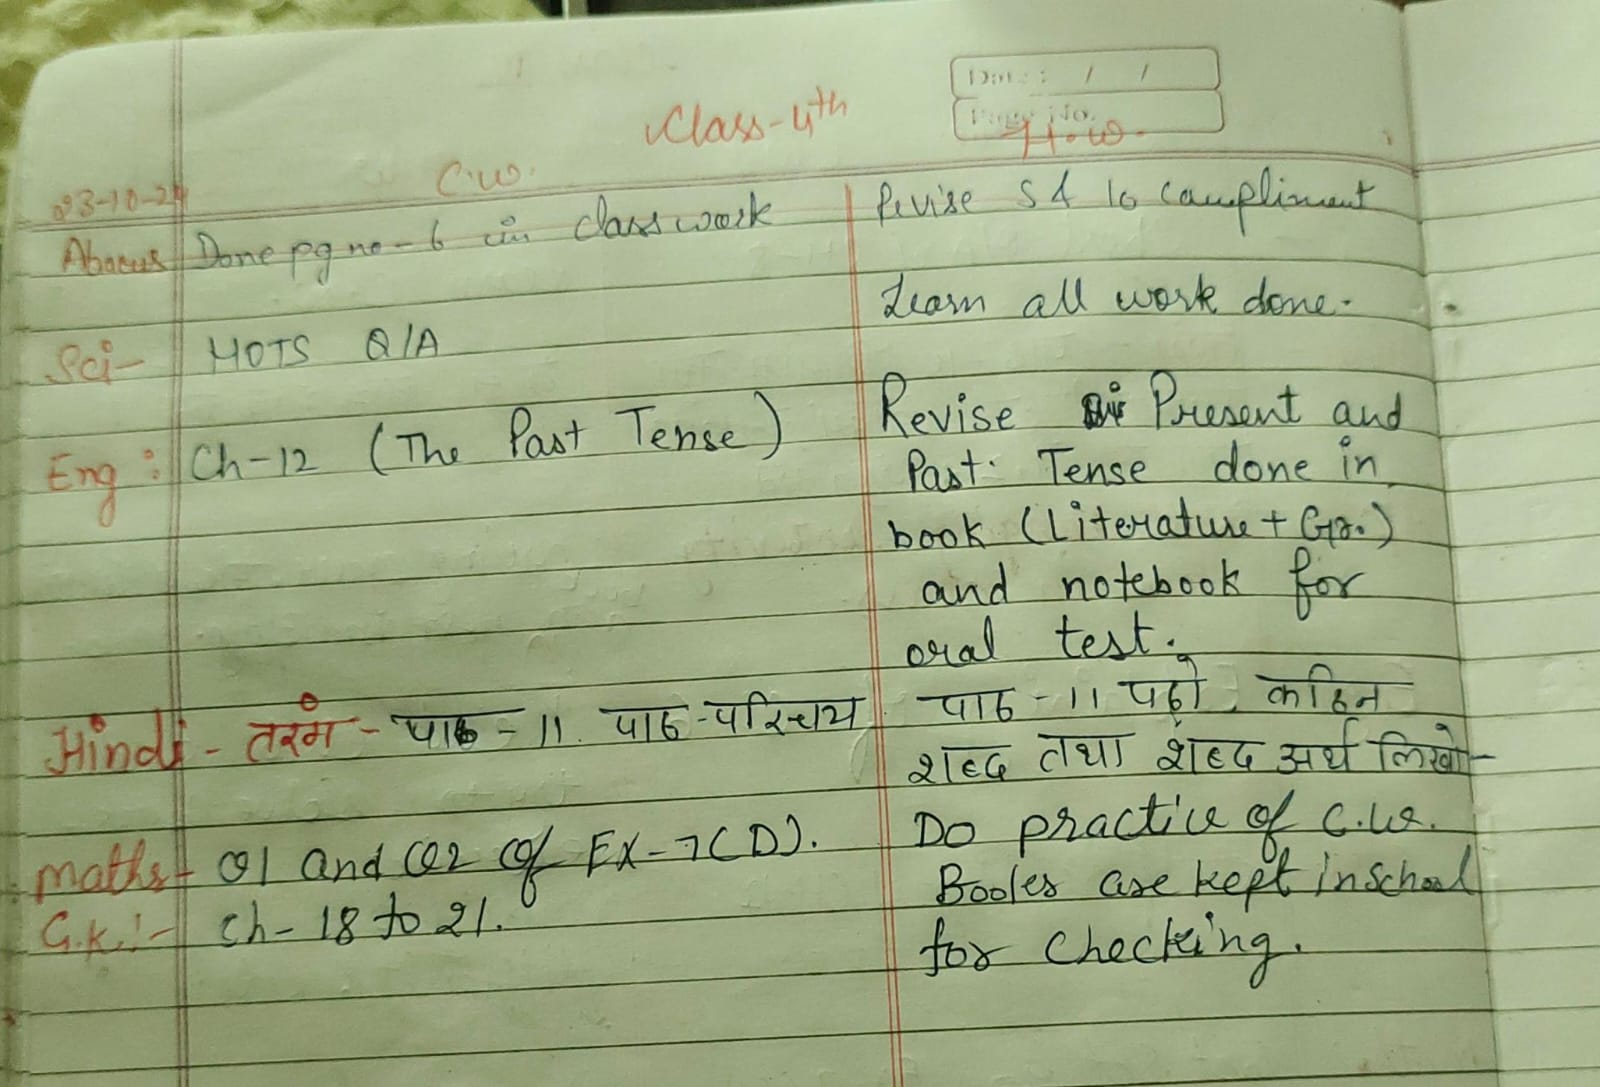 Date : / /
Page No.
Class-4th
C.W. H.W.
23-10-24
Abacus Done pg no-6 in classwork Revise S & 10 compliment
Learn all work done.
Sci- HOTS Q/A
Eng : Ch-12 (The Past Tense) Revise Present and
Past Tense done in
book (Literature + Gr.)
and notebook for
oral test.
Hindi - तरंग - पाठ - 11. पाठ-परिचय पाठ - 11 पढ़ो, कठिन
शब्द तथा शब्द अर्थ लिखो-
Maths- Q1 and Q2 of EX-7(D). Do practice of C.W.
G.K.:- Ch- 18 to 21. Books are kept in School
for checking.